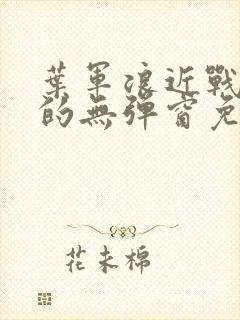 葉軍浪近戰
的無彈窗免
花未棉